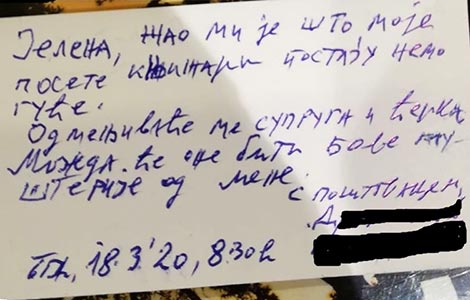 Јелена, жао ми је што моје
посете књижари постају немо
гуће.
Одмењиваће ме супруга и ћерка
Можда ће оне бити бове му-
штерије од мене.
с поштовањем,
Д
Бгд, 18.3.'20, 8.30h